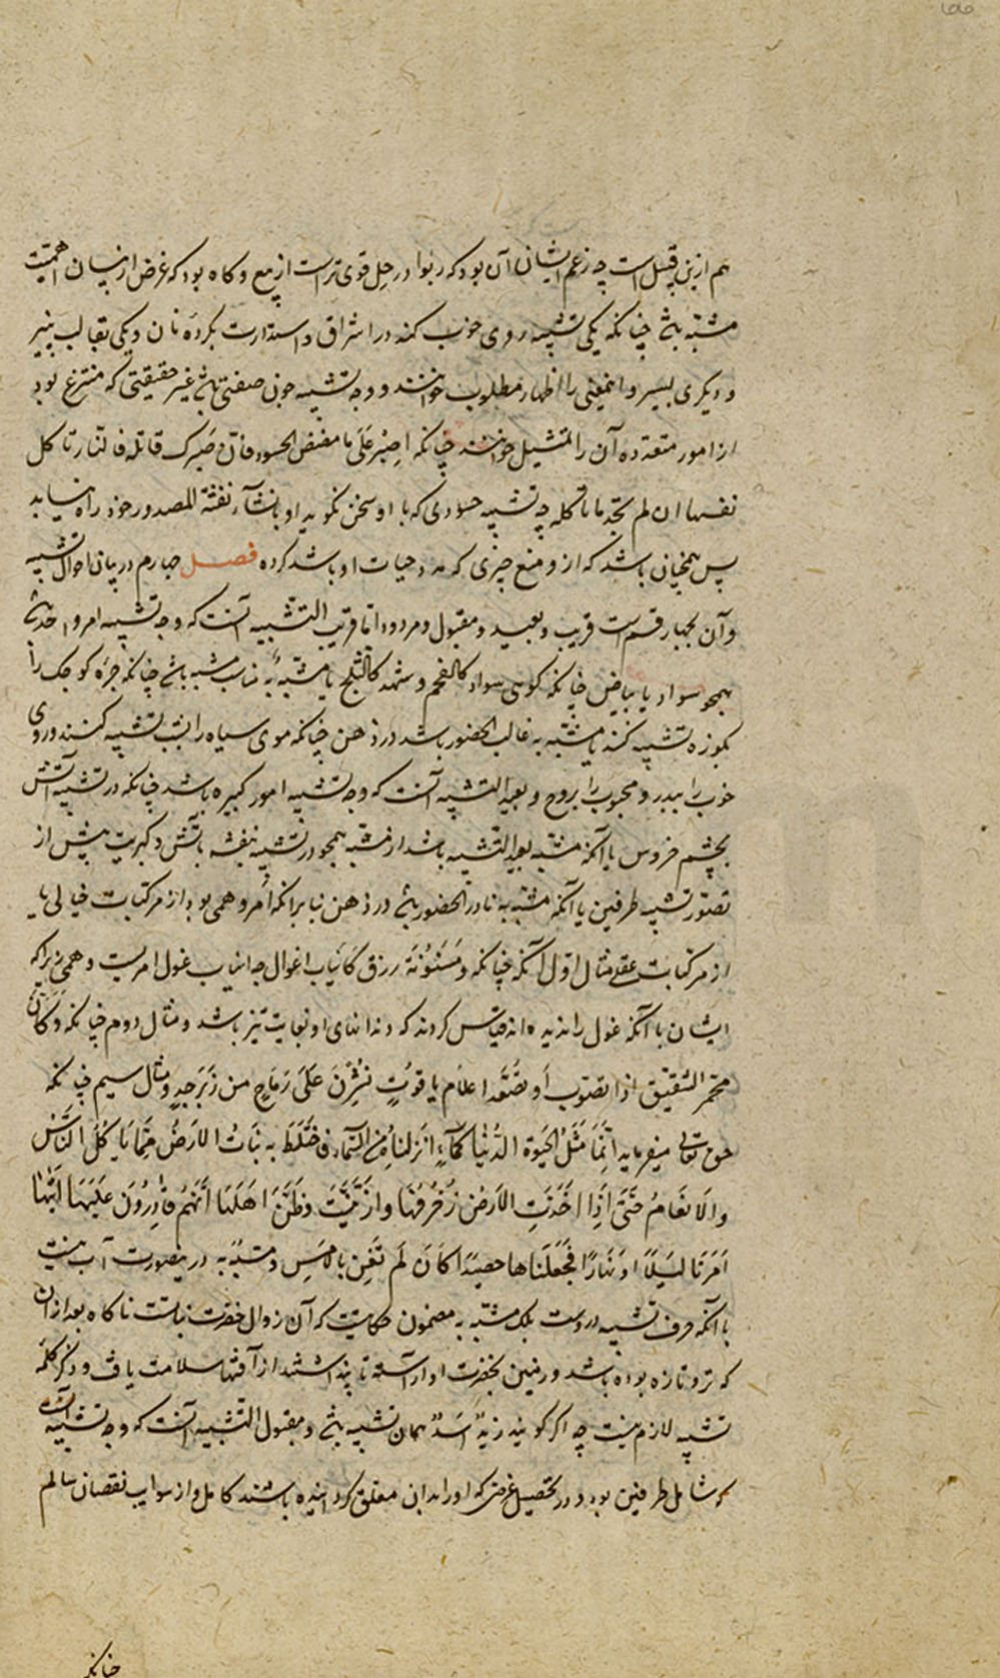 هم ازین قبیل است چه زعم ایشان آن بود که ربوا در حل قوی تر است از بیع و کاه بود که غرض از بیان اهمیت
مشبه به باشد چنانکه یکی تشبیه روی خوب کند در اشراق و استدارت بکرده نان و یکی بقالب پنیر
و دیکری بسیر و اینمعنی را اظهار مطلوب خوانند و وجه تشبیه چون صفتی باشد غیر حقیقتی که منتزع بود
از امور متعدده آن را تمثیل خوانند چنانکه اصبر علی مضض الحسود فان صبرک قاتله فالنار تاکل
نفسها ان لم تجد ما تاکله چه تشبیه حسودی که با او سخن نکویند او بانشآء نفثة المصدور خود راه نیابد
پس همچنان باشد که از و منع چیزی که مدد حیات او باشد کرده فصل چهارم در بیان احوال تشبیه
و آن بچهار قسم است قریب و بعید و مقبول و مردود اما قریب التشبیه آنست که وجه تشبیه امر واحد باشد
همچو سواد یا بیاض چنانکه کویی سواد کالفحم و شمه کالثلج یا مشبه به مناسب مشبه باشد چنانکه جره کوچک را
بکوزه تشبیه کنند یا مشبه به غالب الحضور باشد در ذهن چنانکه موی سیاه را بشب تشبیه کنند و روی
خوب را ببدر و محبوب را بروح و بعید التشبیه آنست که وجه تشبیه امور کثیره باشد چنانکه در تشبیه آتش
بچشم خروس یا آنکه مشبه به بعید التشبیه باشد از مشبه همچو در تشبیه بنفشه بآتش و کبریت پیش از
تصور تشبیه طرفین یا آنکه مشبه به نادر الحضور باشد در ذهن بنا برانکه امر وهمی بود از مرکبات خیالی یا
از مرکبات عقلی مثال اول آنکه چنانکه و مسنونة زرق کانیاب اغوال چه انیاب غول امریست وهمی زیراکه
ایشان با آنکه غول را ندیده اند قیاس کردند که دندانهای او بغایت تیز باشد و مثال دوم چنانکه و کان
محمر الشقیق اذا تصوب او تصعد اعلام یاقوت نشرن علی رماح من زبرجد و مثال سیم چنانکه
حق تعالی میفرماید انما مثل الحیوة الدنیا کمآء انزلناه من السمآء فاختلط به نبات الارض مما یاکل الناس
والانعام حتی اذا اخذت الارض زخرفها وازینت وظن اهلها انهم قادرون علیها اتیها
امرنا لیلا او نهارا فجعلناها حصیدا کان لم تغن بالامس و مشبه به درینصورت آب نیست
با آنکه حرف تشبیه دروست بلک مشبه به مضمون حکایتست که آن زوال خضرت نباتست ناکاه بعد از ان
که تر و تازه بوده باشد و زمین بخضرت او آراسته تا پنداشتند از آفتها سلامت یافت و ذکر کلمه
تشبیه لازم نیست چه اکر کویند زید اسد همان تشبیه باشد و مقبول التشبیه آنست که وجه تشبیه
که شامل طرفین بود و در تحصیل غرضی که اورا بدان معلق کردانیده باشند کامل و از شوایب نقصان سالم
چنانکه